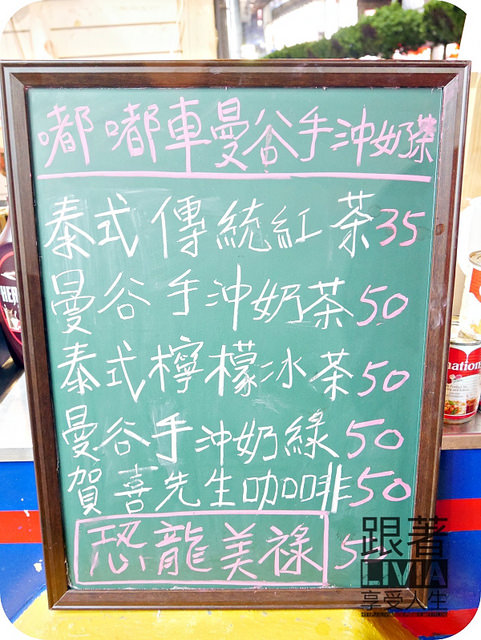 嘟嘟車曼谷手沖奶茶
泰式傳統紅茶35
曼谷手沖奶茶50
泰式檸檬冰茶50
曼谷手沖奶綠50
賀喜先生咖啡50
恐龍美祿 5
HER
nation
跟著
LIVIA
享受人生